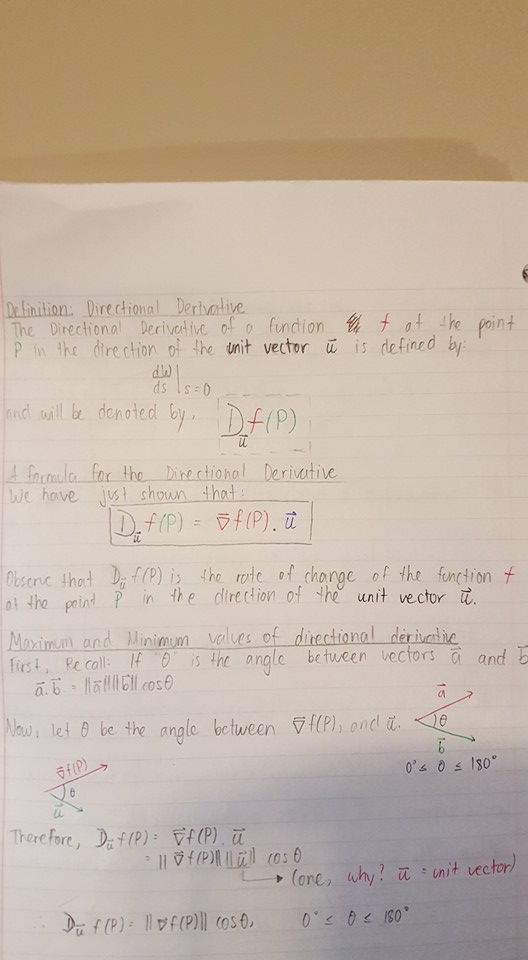 Definition: Directional Derivative
The Directional Derivative of a function f at the point
P in the direction of the unit vector u⃗ is defined by:
dw/ds |s=0
and will be denoted by, D_u⃗ f(P)
A formula for the Directional Derivative
We have just shown that:
D_u⃗ f(P) = ∇⃗f(P) . u⃗
Observe that D_u⃗ f(P) is the rate of change of the function f
at the point P in the direction of the unit vector u⃗.
Maximum and Minimum values of directional derivative
First, Recall: If θ is the angle between vectors a⃗ and b⃗
a⃗.b⃗ = ||a⃗||||b⃗|| cosθ
a⃗
Now, let θ be the angle between ∇⃗f(P), and u⃗.
θ
b⃗
0° ≤ θ ≤ 180°
∇⃗f(P)
θ
u⃗
Therefore, D_u⃗ f(P) = ∇⃗f(P) . u⃗
= ||∇⃗f(P)|| ||u⃗|| cosθ
→ (one, why? u⃗ = unit vector)
∴ D_u⃗ f(P) = ||∇f(P)|| cosθ, 0° ≤ θ ≤ 180°